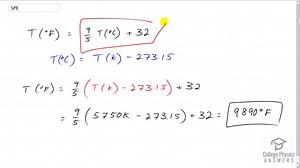 SPE
T (°F) = 9/5 T(°C) + 32
T(°C) = T(K) - 273.15
T(°F) = 9/5 (T(K) - 273.15) + 32
= 9/5 (5750K - 273.15) + 32 = 9890°F
College Physics
ANSWERS